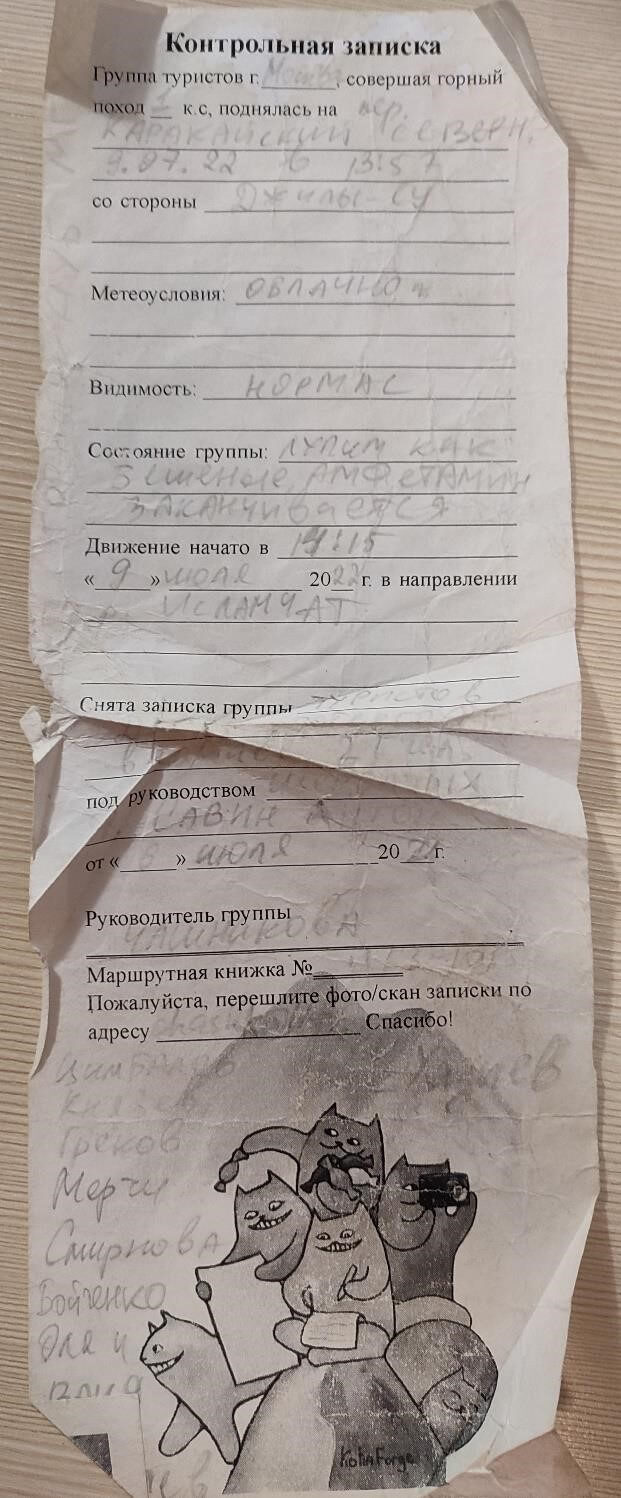 Контрольная записка
Группа туристов г. Москва, совершая горный
поход 1 к.с, поднялась на пер.
КАРАКАЙСКИЙ СЕВЕРН.
9.07.22 в 13:57
со стороны Джилы-су
Метеоусловия: ОБЛАЧНО
Видимость: НОРМАС
Состояние группы: ЛУПИМ КАК
БЕШЕНЫЕ, АМФЕТАМИН
ЗАКАНЧИВАЕТСЯ
Движение начато в 14:15
« 9 » июля 2022 г. в направлении
ИСЛАМЧАТ
Снята записка группы туристов
под руководством
САВИН
от « » июля 20 г.
Руководитель группы
ЧАШНИКОВА
Маршрутная книжка №
Пожалуйста, перешлите фото/скан записки по
адресу Спасибо!
Цимбалов
Князев
Греков
Мерчи
Смирнова
Бойченко
Оля и
KotinForge